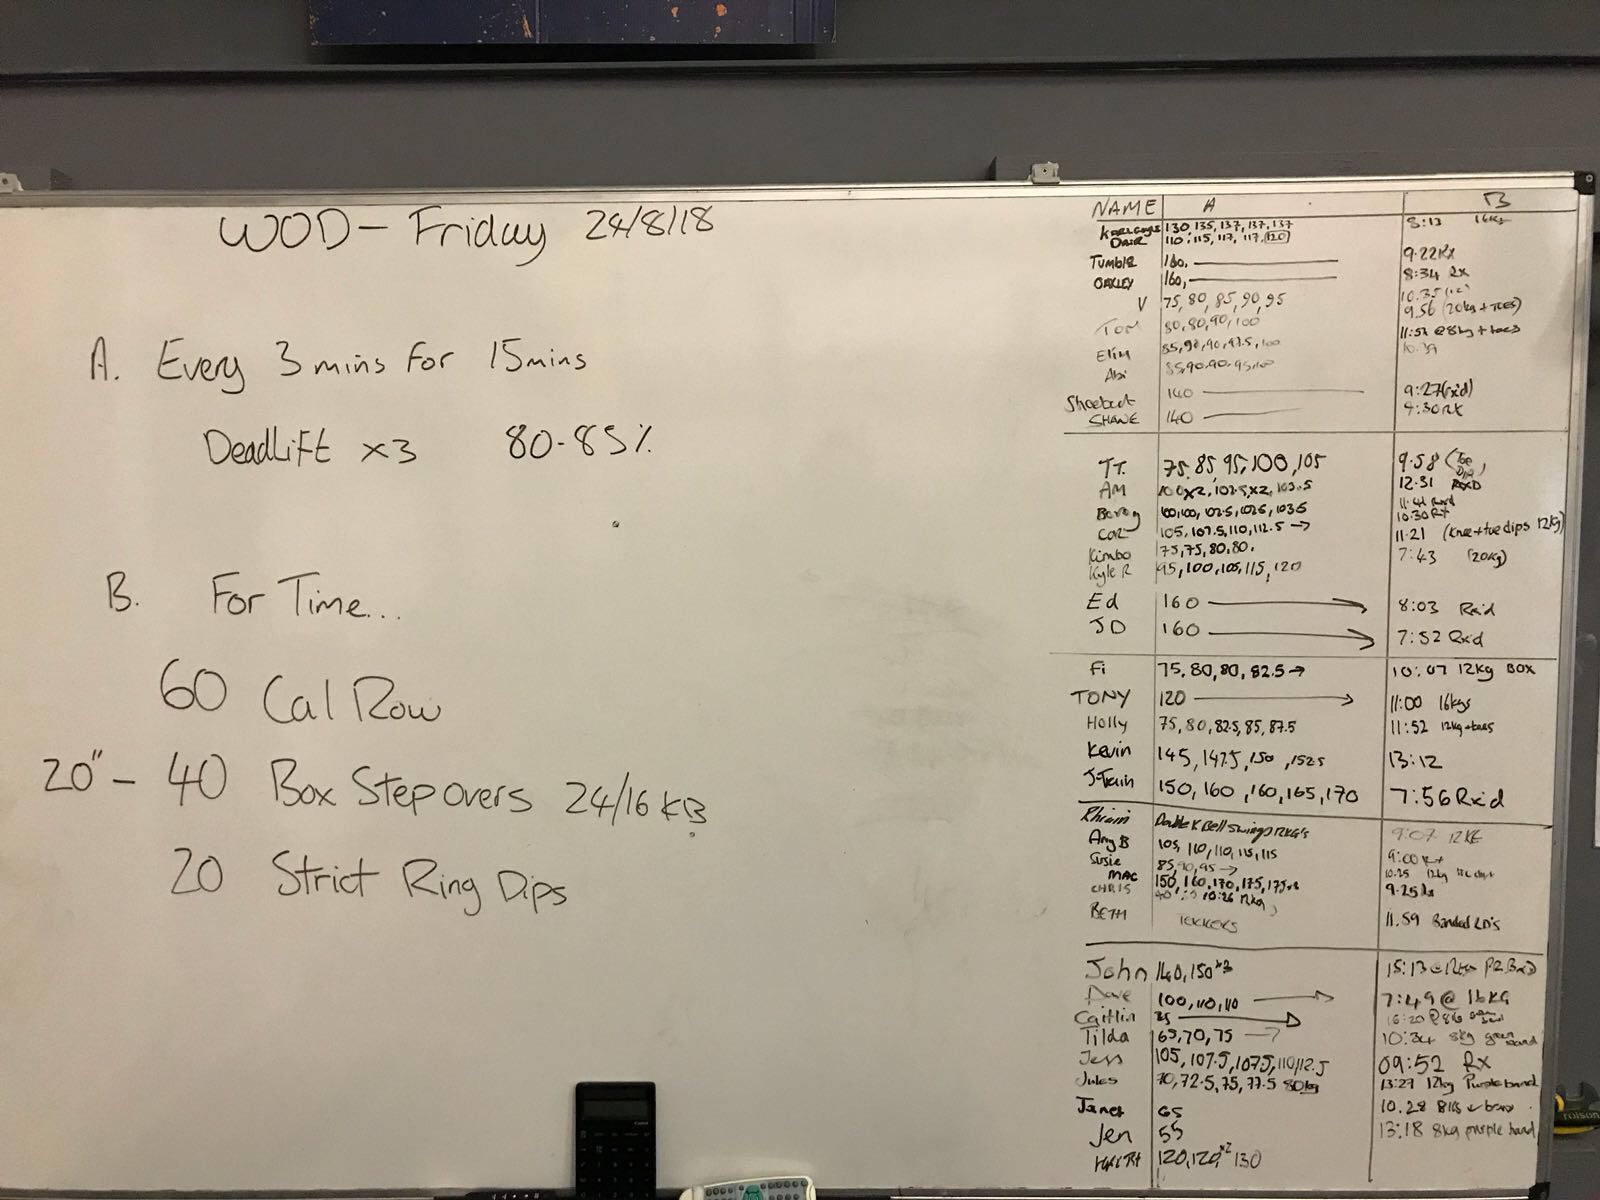 WOD - Friday 24/8/18
A. Every 3 mins for 15mins
DeadLift x3 80-85%
B. For Time...
60 Cal Row
20" - 40 Box Step overs 24/16 KB
20 Strict Ring Dips
NAME A B
130, 135, 137, 137, 137 16kg
110, 115, 117, 117, 120
Tumble 9.22 Rx
OAKLEY 160, 8:34 Rx
V 75, 80, 85, 90, 95
80, 80, 90, 100 9.56 (20kg + toes)
85, 90, 90, 97.5, 100
Abi 85, 90, 90, 95, 100
140 9:27 (rxd)
SHANE 140
TT. 75, 85, 95, 100, 105 9.58 (Toe Dip)
AM 12.31 RXD
100, 100, 102.5, 102.5, 103.5 10.30 Rx
105, 107.5, 110, 112.5 → 11.21 (Knee + toe dips 12kg)
Kimbo 75, 75, 80, 80. 7:43 (20kg)
Kyle R 95, 100, 105, 115, 120
Ed 160 → 8:03 Rx'd
JD 160 → 7:52 Rx'd
Fi 75, 80, 80, 82.5 → 10:07 12kg BOX
TONY 120 → 11:00 16kgs
Holly 75, 80, 82.5, 85, 87.5 11:52 12kg + toes
Kevin 145, 147.5, 150, 152.5 13:12
J-Train 150, 160, 160, 165, 170 7:56 Rx'd
Double K Bell Swings 9:07
Amy B 105, 110, 110, 115, 115 9:00 Rx
Susie 85, 90, 95 → 10.25 12kg
MAC 150, 160, 170, 175, 9.25
CHRIS 10:26 12kg
BETH 11.59 Banded
John 140, 150 x3 15:13 @
Dave 100, 110, 110 → 7:49 @ 16KG
Caitlin →
Tilda 65, 70, 75 → 10:34 8kg green band
Jess 105, 107.5, 107.5, 110, 112.5 09:52 RX
Jules 70, 72.5, 75, 77.5 80kg 13:27 12kg Purple band
Janet 65 10.28
Jen 55 13:18 8kg purple band
120, 120 x2 130
Canon
rolson